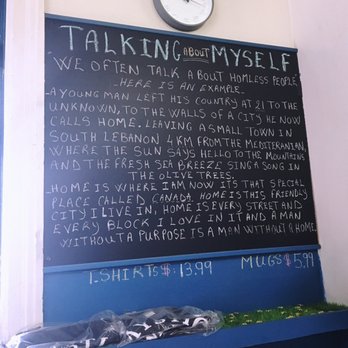 TALKING ABOUT MYSELF
"WE OFTEN TALK ABOUT HOMLESS PEOPLE"
_HERE IS AN EXAMPLE_
_A YOUNG MAN LEFT HIS COUNTRY AT 21 TO THE
UNKNOWN, TO THE WALLS OF A CITY HE NOW
CALLS HOME. LEAVING A SMALL TOWN IN
SOUTH LEBANON 4 KM FROM THE MEDITERANIAN,
WHERE THE SUN SAYS HELLO TO THE MOUNTAINS
AND THE FRESH SEA BREEZE SING A SONG IN
THE OLIVE TREES.
_HOME IS WHERE I AM NOW ITS THAT SPECIAL
PLACE CALLED CANADA. HOME IS THIS FRIENDLY
CITY I LIVE IN, HOME IS EVERY STREET AND
EVERY BLOCK I LOVE IN IT AND A MAN
WITHOUT A PURPOSE IS A MAN WITHOUT A HOME.
T.SHIRTS $ 13.99
MUGS $ 5.99